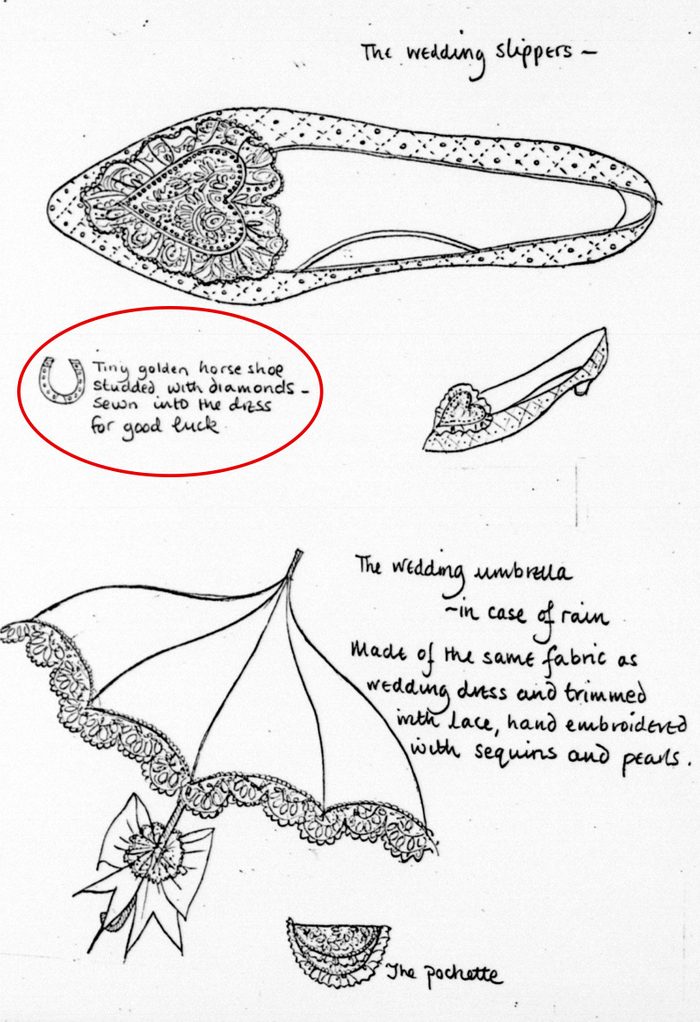 The wedding slippers –
Tiny golden horse shoe
studded with diamonds –
sewn into the dress
for good luck.
The wedding umbrella
– in case of rain
Made of the same fabric as
wedding dress and trimmed
with lace, hand embroidered
with sequins and pearls.
The pochette